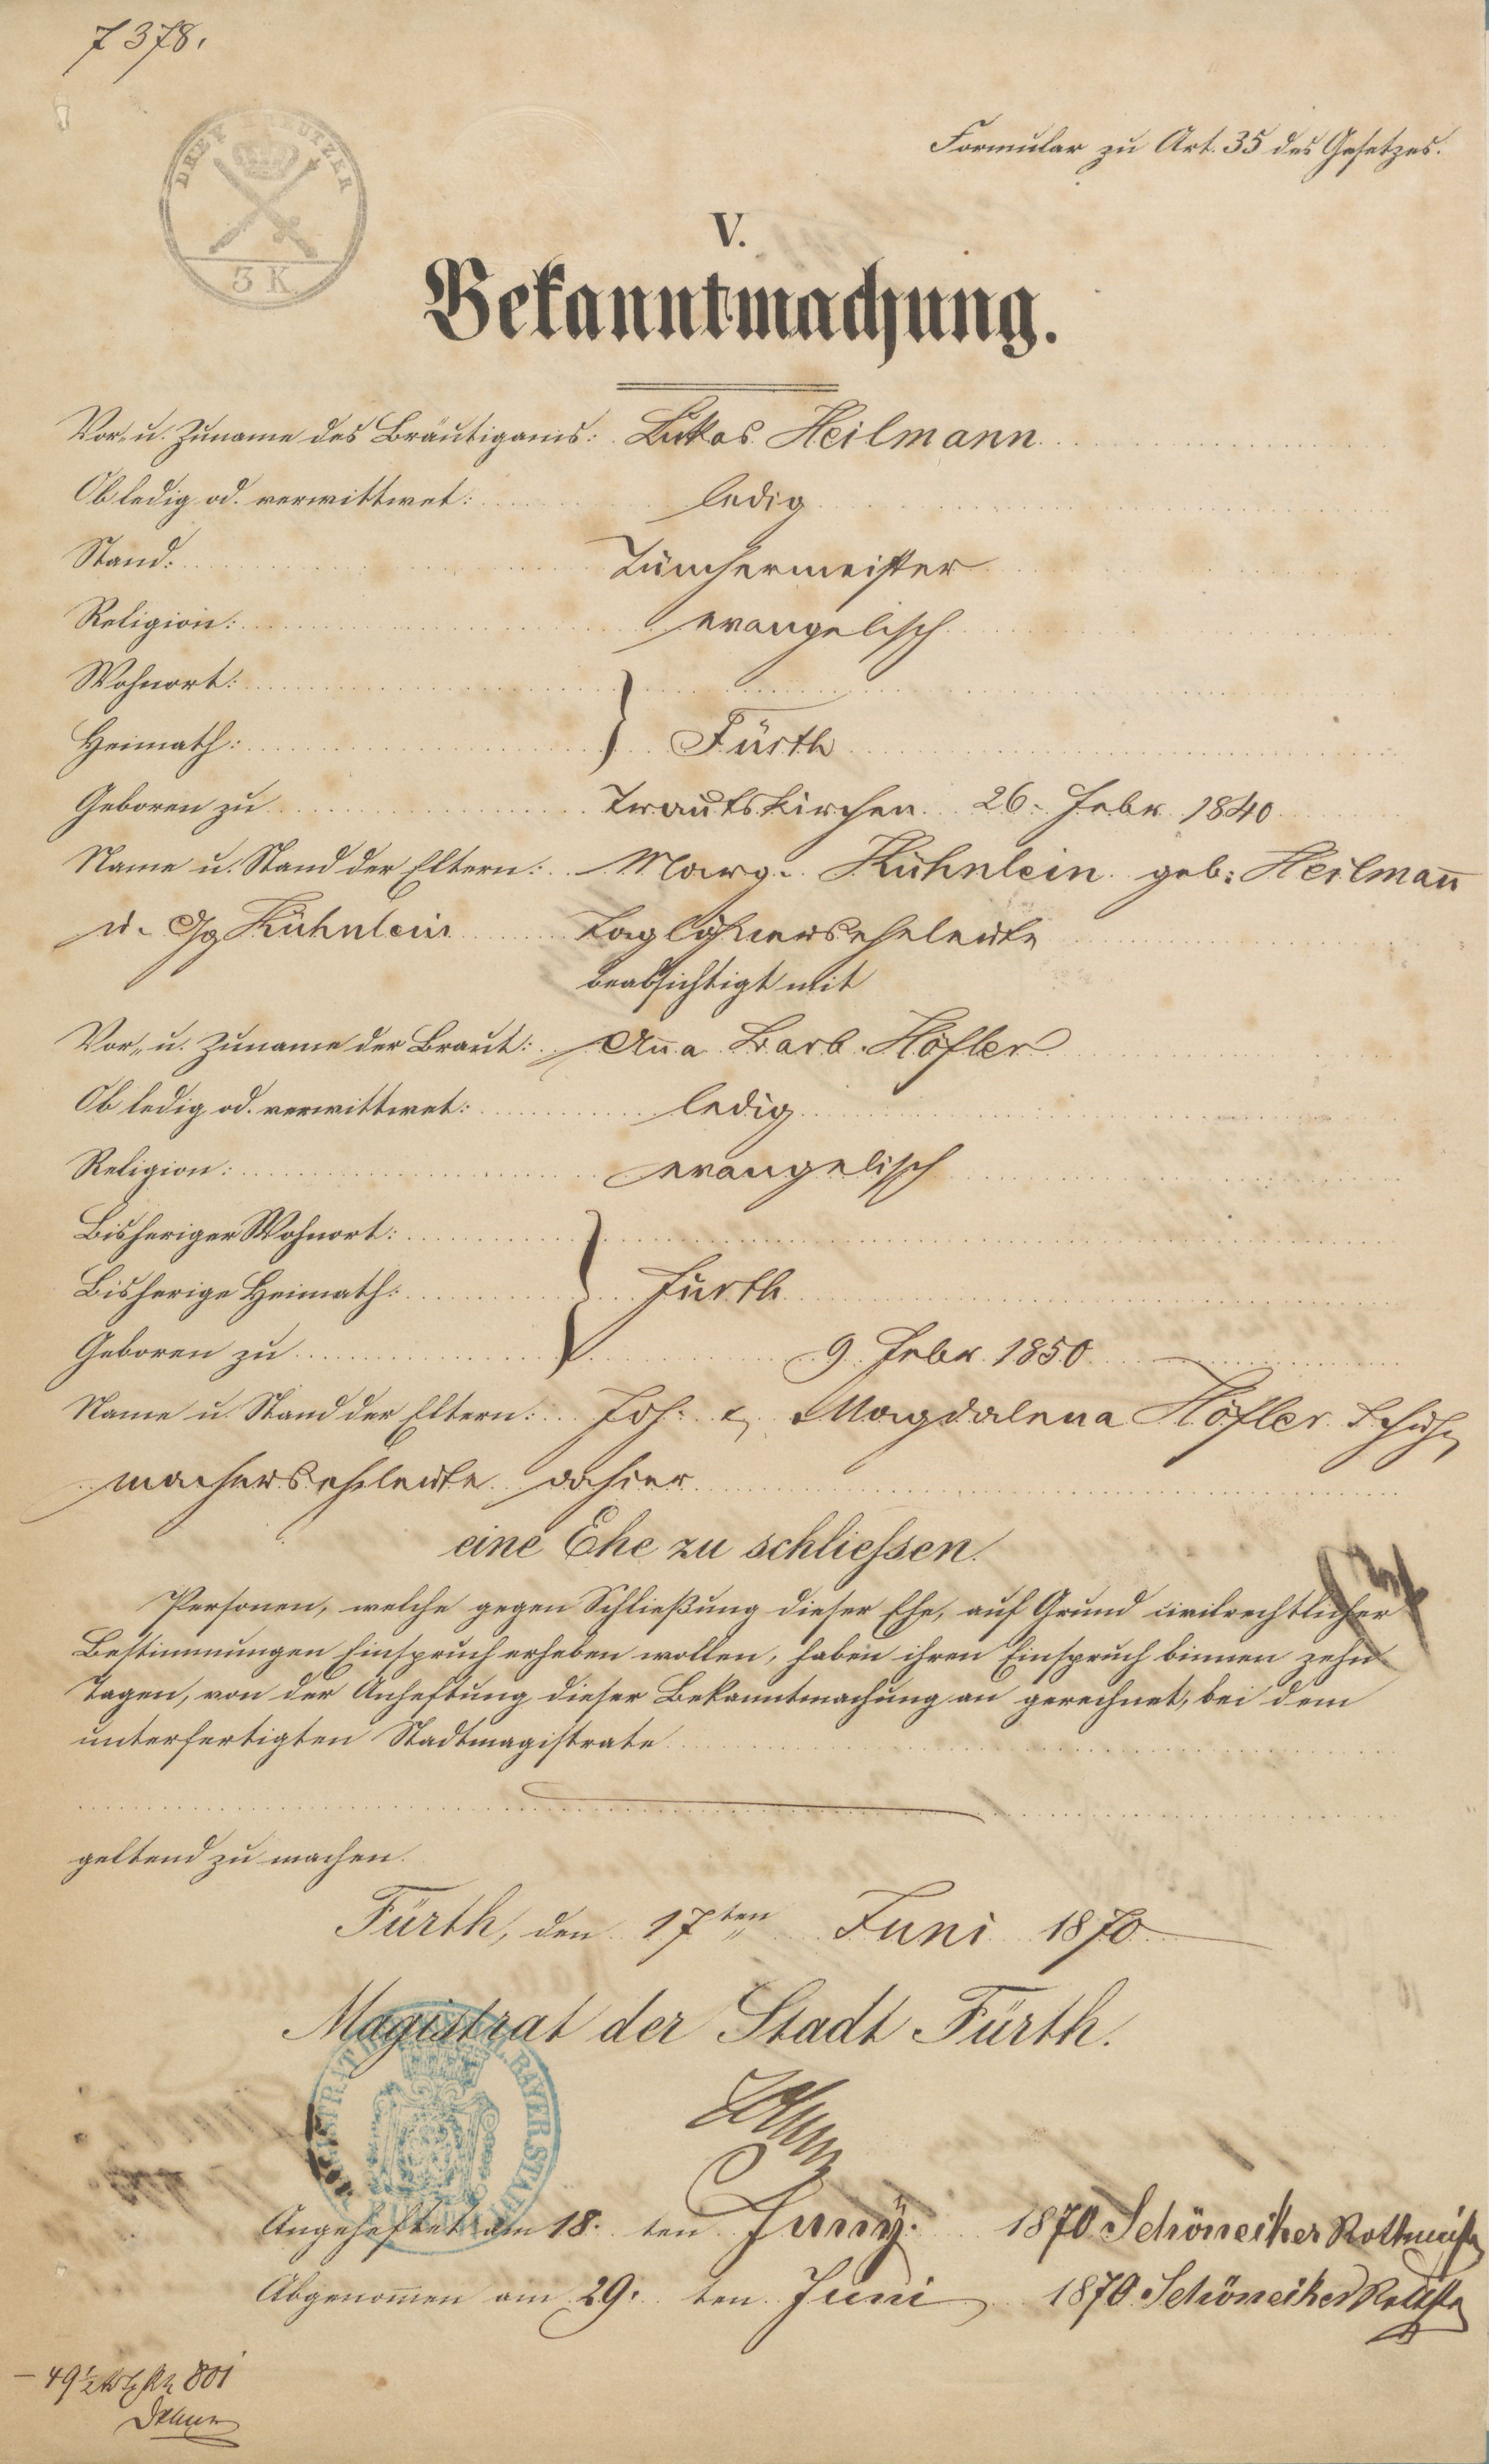 7378.
DREY KREUTZER
3 K
Formular zu Art. 35 des Gesetzes.
V.
Bekanntmachung.
Vor- u. Zuname des Bräutigams: Lukas Heilmann
Ob ledig od. verwittwet: ledig
Stand: Tünchermeister
Religion: evangelisch
Wohnort:
Heimath: Fürth
Geboren zu Trautskirchen 26. Febr. 1840
Name u. Stand der Eltern: Marg. Kühnlein geb: Heilmañ
u. Gg Kühnlein Taglöhnerseheleute
beabsichtigt mit
Vor- u. Zuname der Braut: Aña Barb. Höfler
Ob ledig od. verwittwet: ledig
Religion: evangelisch
Bisheriger Wohnort:
Bisherige Heimath: Fürth
Geboren zu 9. Febr. 1850
Name u. Stand der Eltern: Joh. & Magdalena Höfler Schuh-
macherseheleute dahier
eine Ehe zu schliessen.
Personen, welche gegen Schließung dieser Ehe, auf Grund civilrechtlicher
Bestimmungen Einspruch erheben wollen, haben ihren Einspruch binnen zehn
Tagen, von der Anheftung dieser Bekanntmachung an gerechnet, bei dem
unterfertigten Stadtmagistrate
geltend zu machen.
Fürth, den 17ten Juni 1870
Magistrat der Stadt Fürth.
Angeheftet am 18. ten Juny. 1870 Schöneiker Rottmeister
Abgenom̄en am 29. ten Juni 1870. Schöneiker